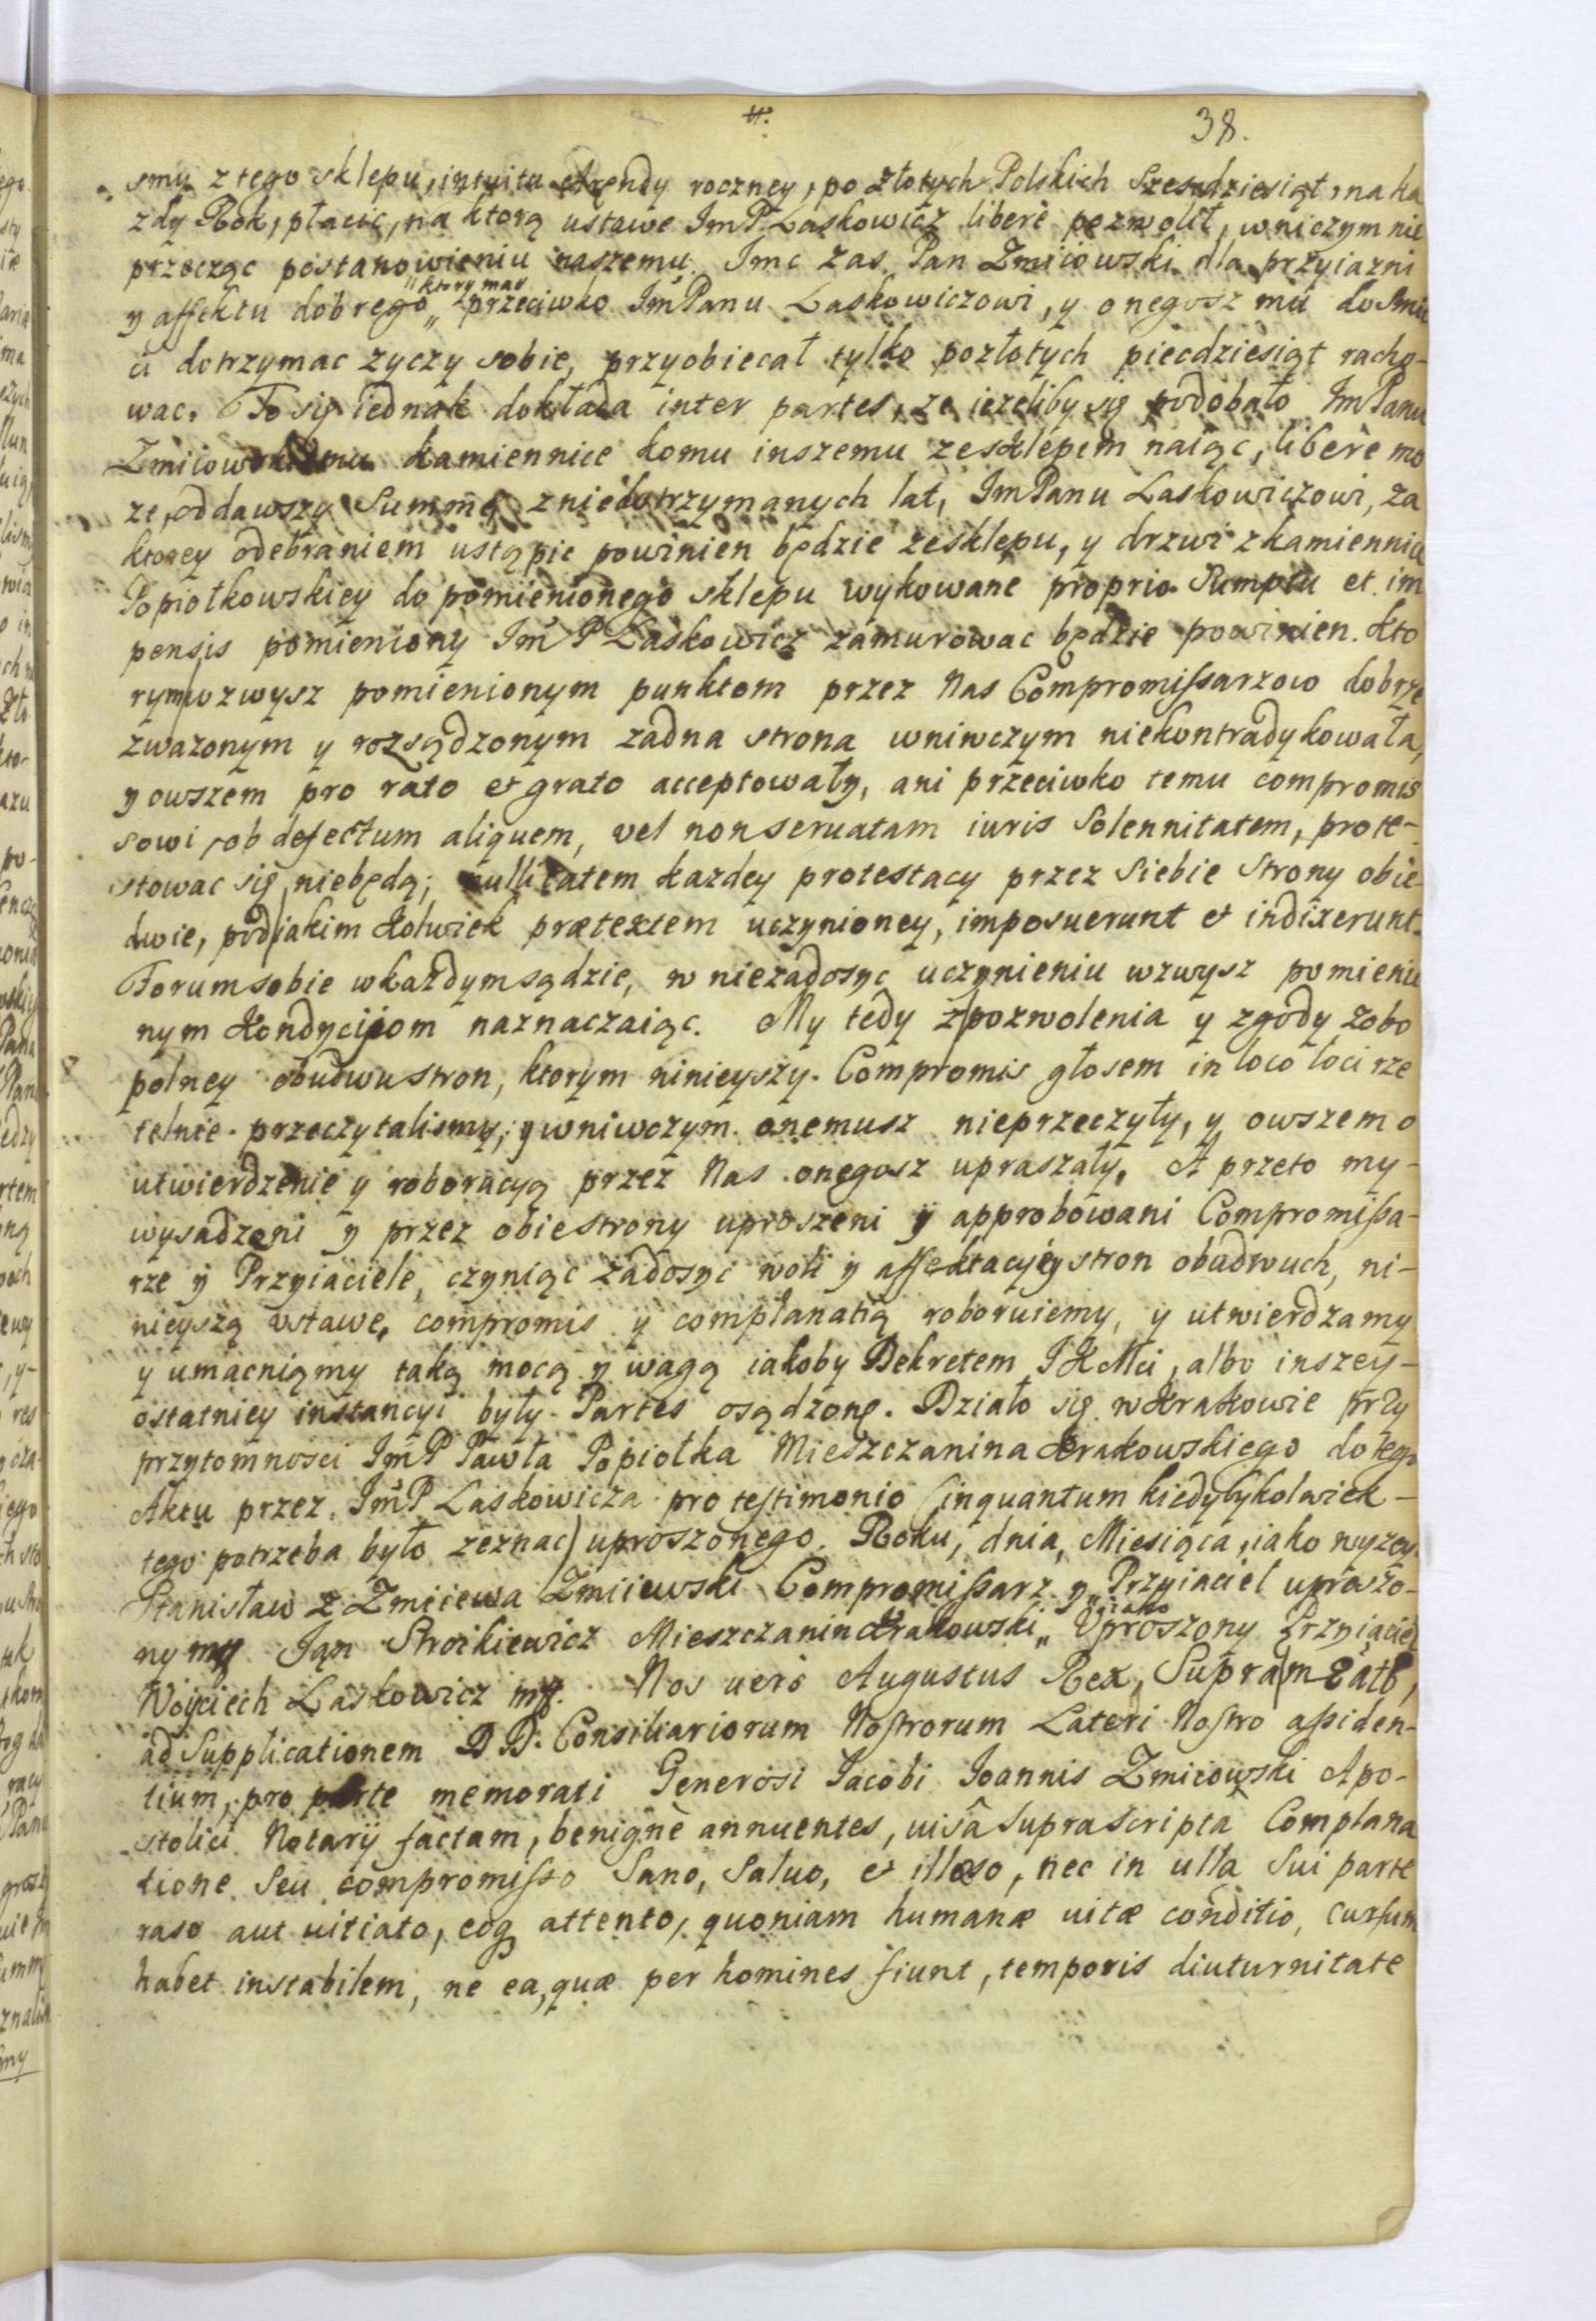 #. 38.
smy z tego sklepu, intuitu arendy roczney, po złotych Polskich Szesdziesiąt, na ka
zdy Rok, płacic, na ktorą ustawe ImP. Laskowicz liberè pozwolił, wniczym nie
przecząc postanowieniu naszemu. Imc zas Pan Zmiiowski dla przyiazni
ktory mar
y affektu dobrego „ przeciwko ImPanu Laskowiczowi, y onegosz mu do Smie
ci dotrzymac zyczy sobie, przyobiecał tylko pozłotych piecdziesiąt racho-
wac. To się iednak dokłada inter partes, ze iezeliby się podobało ImPanu
Zmiiowskiemu kamiennice komu inszemu zesklepem naiąc, liberè mo
ze, oddawszy Summę z niedotrzymanych lat, ImPanu Laskowiczowi, za
ktorey odebraniem ustąpic powinien będzie zesklepu, y drzwi zkamiennice
Popiołkowskiey do pomienionego sklepu wykowane proprio Sumptu et im
pensis pomieniony Im P Laskowicz zamurowac będzie powinien. Kto
rym wzwysz pomienionym punktom przez Nas Compromissarzow dobrze
zwazonym y rozsądzonym zadna strona wniwczym niekontradykowała,
y owszem pro rato et grato acceptowały, ani przeciwko temu compromis
sowi, ob defectum aliquem, vel non seruatam iuris Solennitatem, prote-
stowac się niebędą; nullitatem kazdey protestacy przez Siebie Strony obie
dwie, pod jakim kolwiek prætextem uczynioney, imposuerunt et indixerunt.
Forum sobie wkazdym sądzie, w niezadosyc uczynieniu wzwysz pomienio
nym Kondycijom naznaczaiąc. My tedy z pozwolenia y zgody zobo
polney obudwu stron, ktorym ninieyszy Compromis głosem in loco loci rze
telnie przeczytalismy; y wniwczym onemusz nieprzeczyły, y owszem o
utwierdzenie y roboracyą przez Nas onegosz upraszały. A przeto my-
wysadzeni y przez obie strony uproszeni y approbowani Compromissa-
rze y Przyiaciele, czyniąc zadosyc woli y affektacyey stron obudwuch, ni-
nieyszą ustawe, compromis y complanatią roboruiemy, y utwierdzamy
y umacniamy taką mocą y wagą iakoby Dekretem IKMci, albo inszey-
ostatniey instancyi były Partes osądzone. Działo się w Krakowie przy
przytomnosci ImP Pawła Popiołka Mieszczanina Krakowskiego do tego
Aktu przez ImP Laskowicza pro testimonio (inquantum kiedyżykolwiek-
tego potrzeba było zeznac) uproszonego. Roku, dnia, Miesiąca, iako wyzey.
Stanisław z Zmiiewa Zmiiewski Compromissarz y Przyiaciel uproszo-
iako
ny mp Jan Stroikiewicz Mieszczanin Krakowski „ Uproszony Przyiaciel
Woyciech Laskowicz mp. Nos uerò Augustus Rex, Supra m
ad Supplicationem DD. Consiliariorum Nostrorum Lateri Nostro assiden-
tium, pro parte memorati Generosi Iacobi Ioannis Zmiiowski Apo-
stolici Notarij factam, benignè annuentes, uisâ suprascriptâ Complana
tione seu compromisso Sano, Saluo, et illæso, nec in ulla Sui parte
raso aut uitiato, eoq attento, quoniam humanæ uitæ conditio, cursum
habet instabilem, ne ea, quæ per homines fiunt, temporis diuturnitate